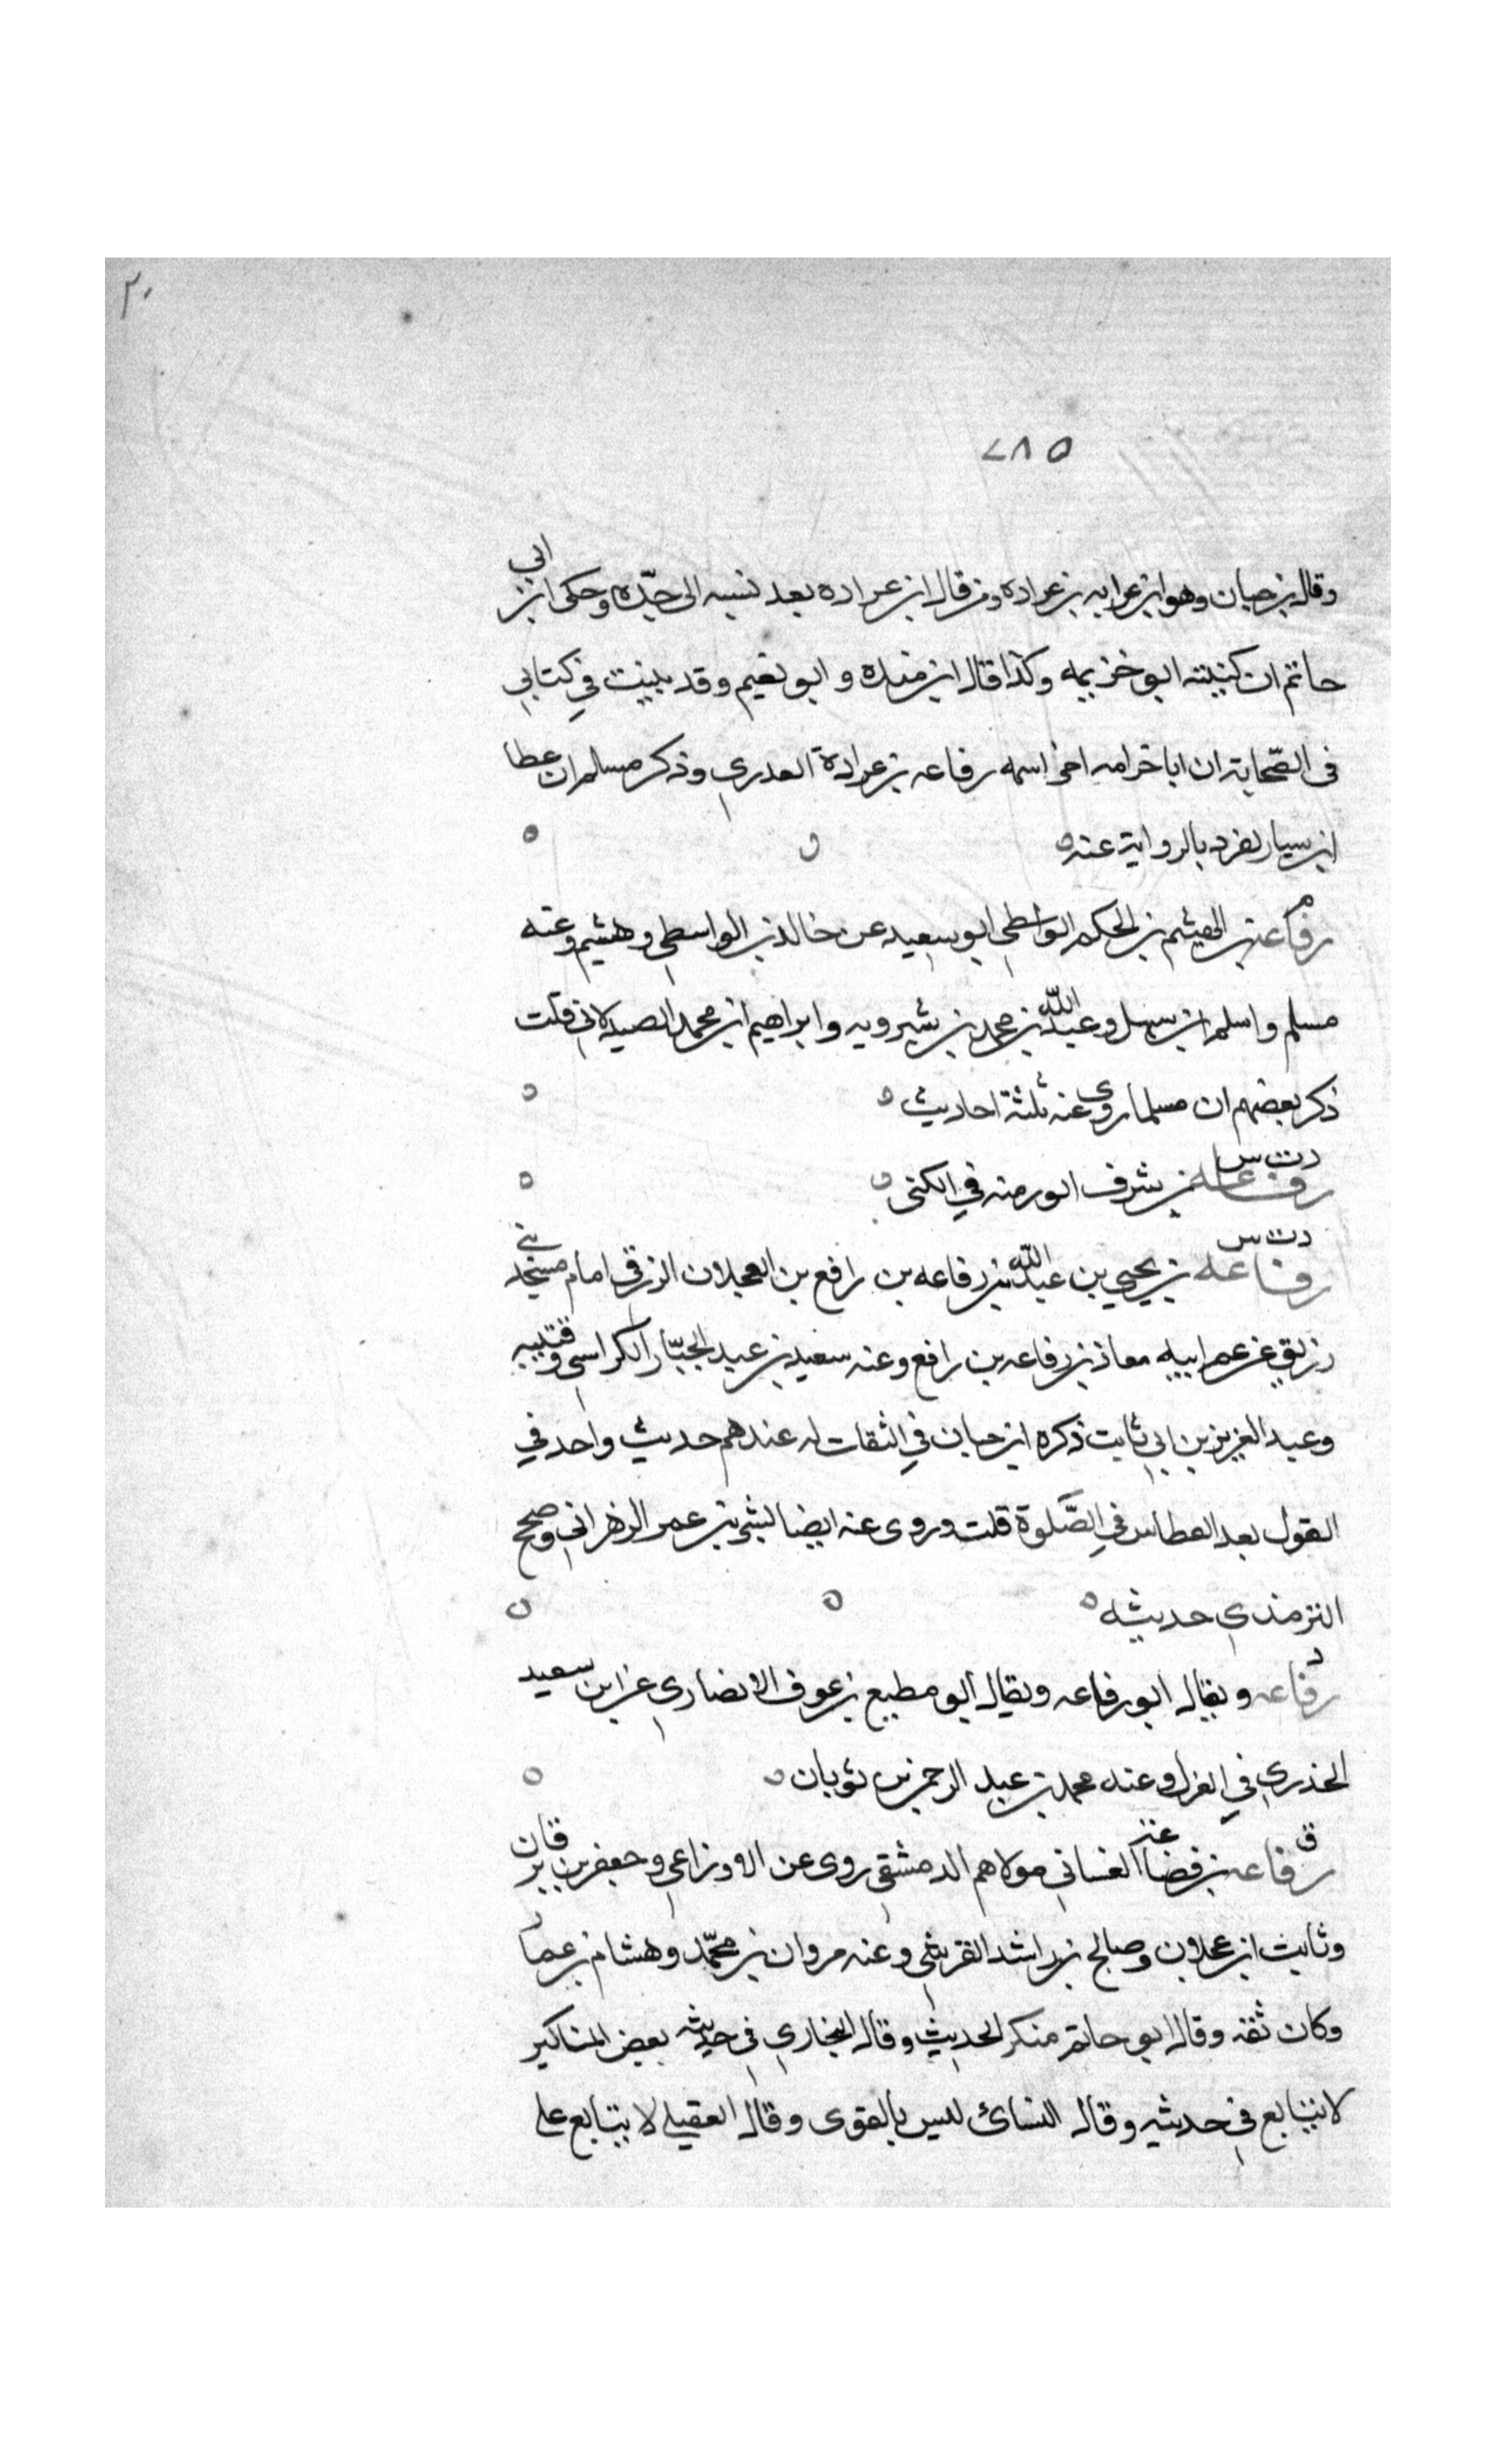 ٢٠
٢٨٥
وقال بن حبان وهو ابن عرابه بن عراده ومن قال ابن عراده بعد نسبه الى جدّه وحكى ابن ابي
حاتم ان كنيته ابو خزيمه وكذا قال ابن منده وابو نعيم وقد بينت في كتابي
في الصّحابة ان ابا خزامه اخر اسمه رفاعه بن عرادة العدري وذكر مسلم ان عطا
ابن سيار تفرد بالرواية عنه
م
رفاعة بن الهيثم بن الحكم الواسطي ابو سعيد عن خالد بن الواسطي وهشيم وعنه
مسلم واسلم ابن سهل وعبد الله بن محمد بن شيرويه وابراهيم ابن محمد الصيدلاني قلت
ذكر بعضهم ان مسلما روى عنه ثلثة احاديث
د ت س
رفاعه بن يثربي ابو رمثه في الكنى
د ت س
رفاعه بن يحيي بن عبد الله بن رفاعه بن رافع بن العجلان الزرقي امام مسجد بني
زريق عن عم ابيه معاذ بن رفاعه بن رافع وعنه سعيد بن عبد الجبّار الكرابسي وقتيبه
وعبد العزيز بن ابي ثابت ذكره ابن حبان في الثقات له عندهم حديث واحد في
القول بعد العطاس في الصَّلوة قلت وروى عنه ايضا بشر بن عمر الزهراني وصحح
الترمذي حديثه
د
رفاعه ويقال ابو رفاعه ويقال ابو مطيع بن عوف الانصاري عن ابن سعيد
الخدري في العزل وعنه محمد بن عبد الرحمن بن ثوبان
ق
رفاعه بن قضاعة الغساني مولاهم الدمشقي روى عن الاوزاعي وجعفر بن برقان
وثابت ابن عجلان وصالح بن راشد القريشي وعنه مروان بن محمّد وهشام بن عمار
وكان ثقه وقال ابو حاتم منكر الحديث وقال البخاري في حديثه بعض المناكير
لا يتابع في حديثه وقال النسائ ليس بالقوى وقال العقيلي لا يتابع على